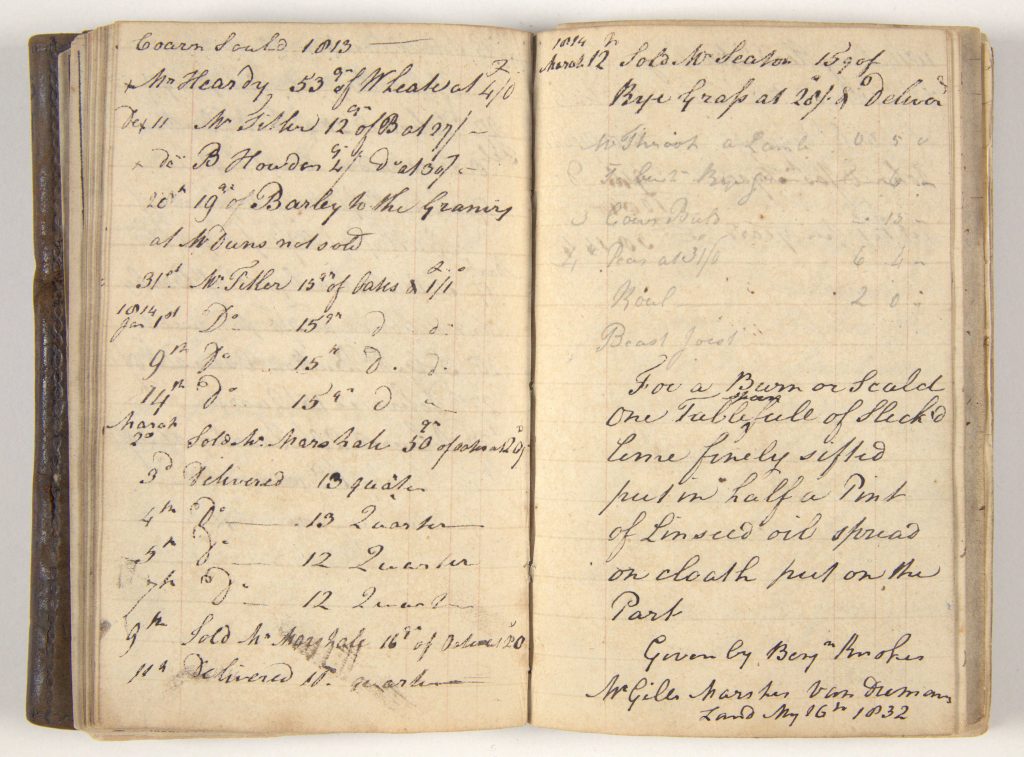 Coarn Sould 1813
Mr Heardy 53 qr of Wheate at 4/0
Dec 11 Mr Tiller 12 qr of B at 27/-
do B Howden 4 qr Do at 39/-
20th 19 qr of Barley to the Granirs
at Mr Duns not sold
31st Mr Tiller 15 qr of Oates
1814
Jan 1st Do 15 qr d d
9th Do 15 d. d.
14th Do 15 q d
March
2d Sold Mr Marshale 50 qr of oates at 20/
3d Delivered 13 quater
4th Do 13 Quarter
5th Do 12 Quarter
7th Do 12 Quart
9th Sold Mr Marshale 16 qr of Oates 20
11th Delivered quarter
1814
March 12th Sold Mr Seaton 15 q of
Rye Grass at 28/- & Deliver
a Lamb 0 5 0
6 -
12 -
Peas at 31/0 6 4 -
2 0 -
Beast Joist
For a Burn or Scald
One Table spoon full of Sleck'd
Lime finely sifted
put in half a Pint
of Linseed oil spread
on cloath put on the
Part
Given by Benjn
Mr Giles Marshes Van Diemans
Land My 16th 1832